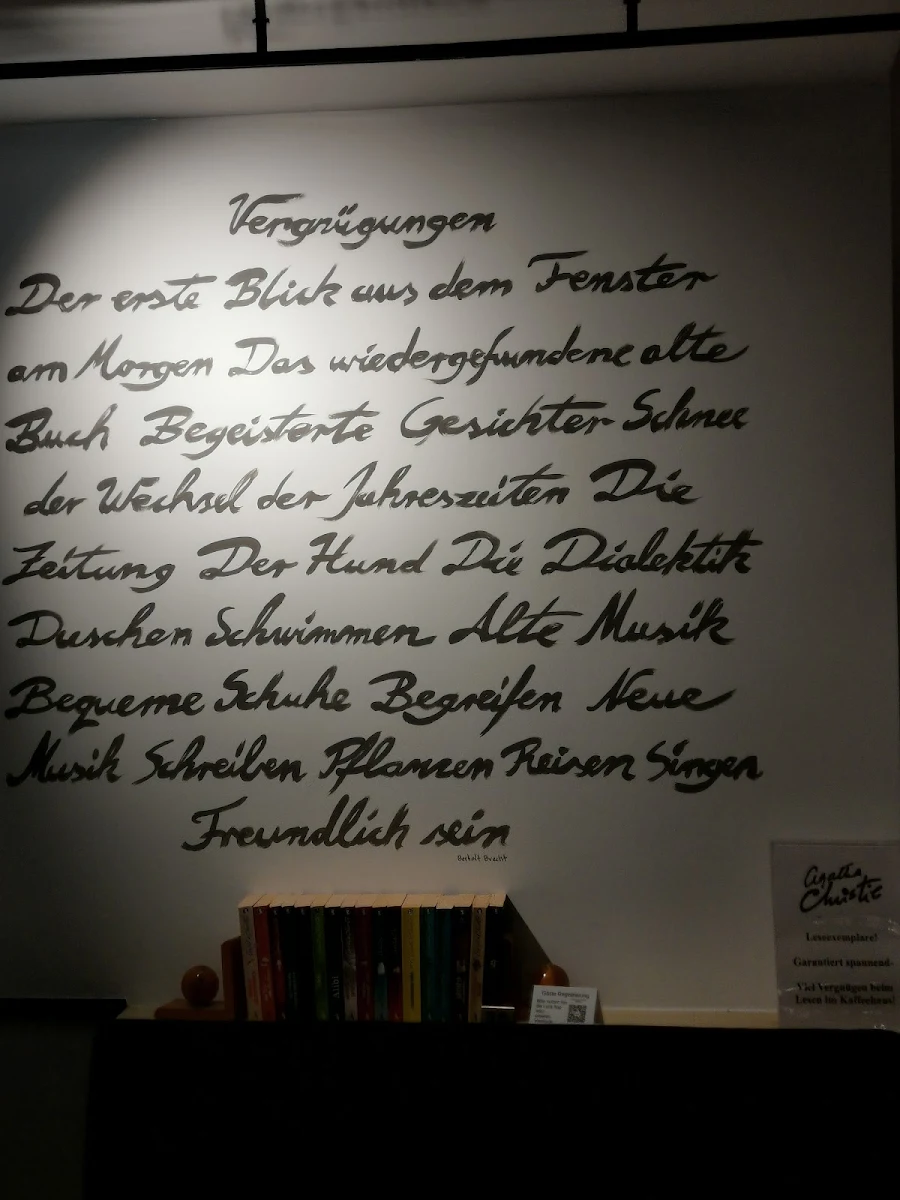 Vergnügungen
Der erste Blick aus dem Fenster
am Morgen Das wiedergefundene alte
Buch Begeisterte Gesichter Schnee
der Wechsel der Jahreszeiten Die
Zeitung Der Hund Die Dialektik
Duschen Schwimmen Alte Musik
Bequeme Schuhe Begreifen Neue
Musik Schreiben Pflanzen Reisen Singen
Freundlich sein
Bertolt Brecht
Agatha
Christie
Leseexemplare!
Garantiert spannend-
Viel Vergnügen beim
Lesen im Kaffeehaus!